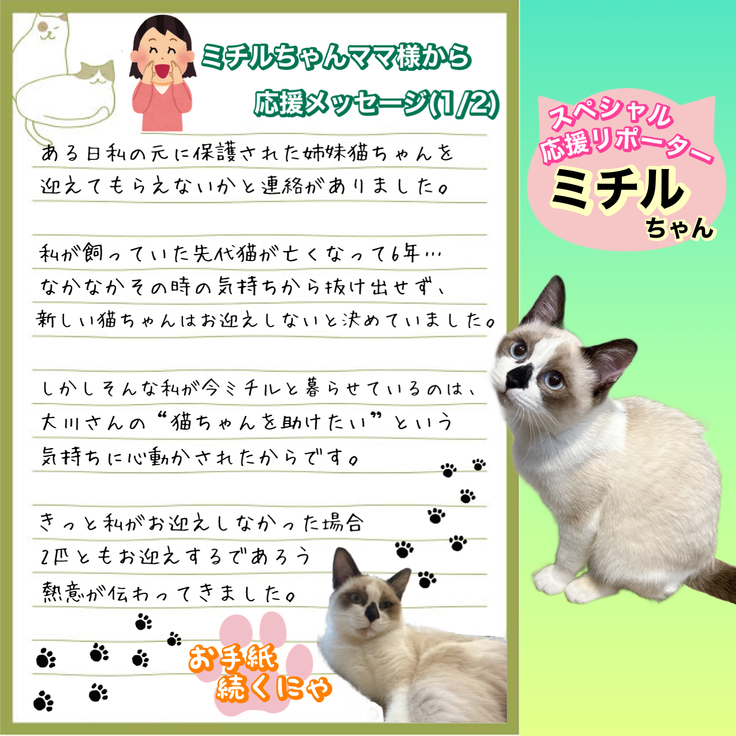 ミチルちゃんママ様から
応援メッセージ(1/2)
ある日私の元に保護された姉妹猫ちゃんを
迎えてもらえないかと連絡がありました。
私が飼っていた先代猫が亡くなって6年…
なかなかその時の気持ちから抜け出せず、
新しい猫ちゃんはお迎えしないと決めていました。
しかしそんな私が今ミチルと暮らせているのは、
大川さんの“猫ちゃんを助けたい”という
気持ちに心動かされたからです。
きっと私がお迎えしなかった場合
2匹ともお迎えするであろう
熱意が伝わってきました。
お手紙
続くにゃ
スペシャル
応援リポーター
ミチル
ちゃん